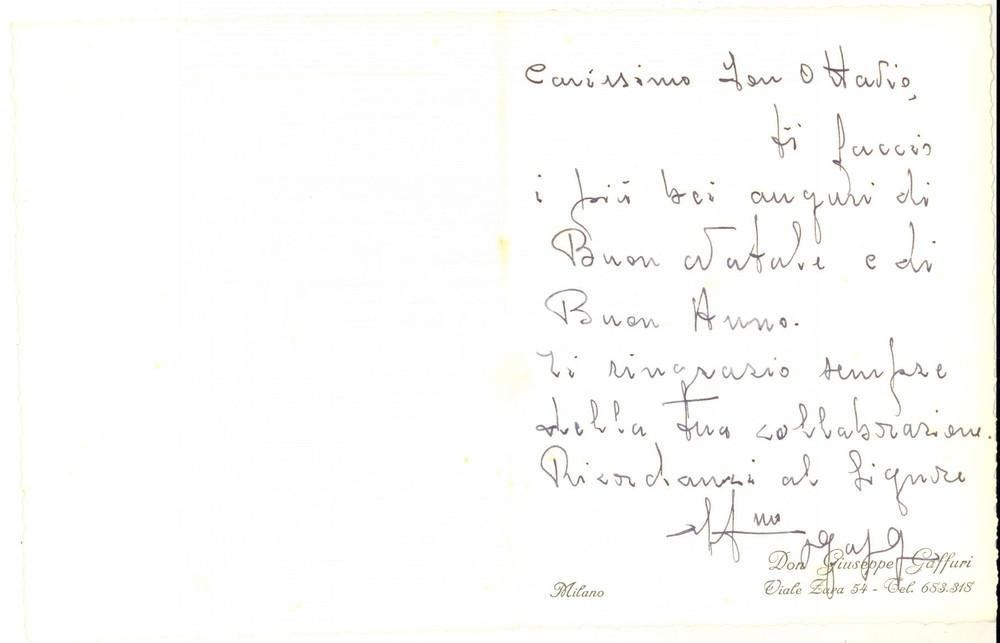 Carissimo Don Ottavio,
ti faccio
i più bei auguri di
Buon Natale e di
Buon Anno.
Ti ringrazio sempre
della tua collaborazione.
Ricordami al Signore
Aff.mo
Don Giuseppe Gaffuri
Milano
Viale Zara 54 - Tel. 683.318